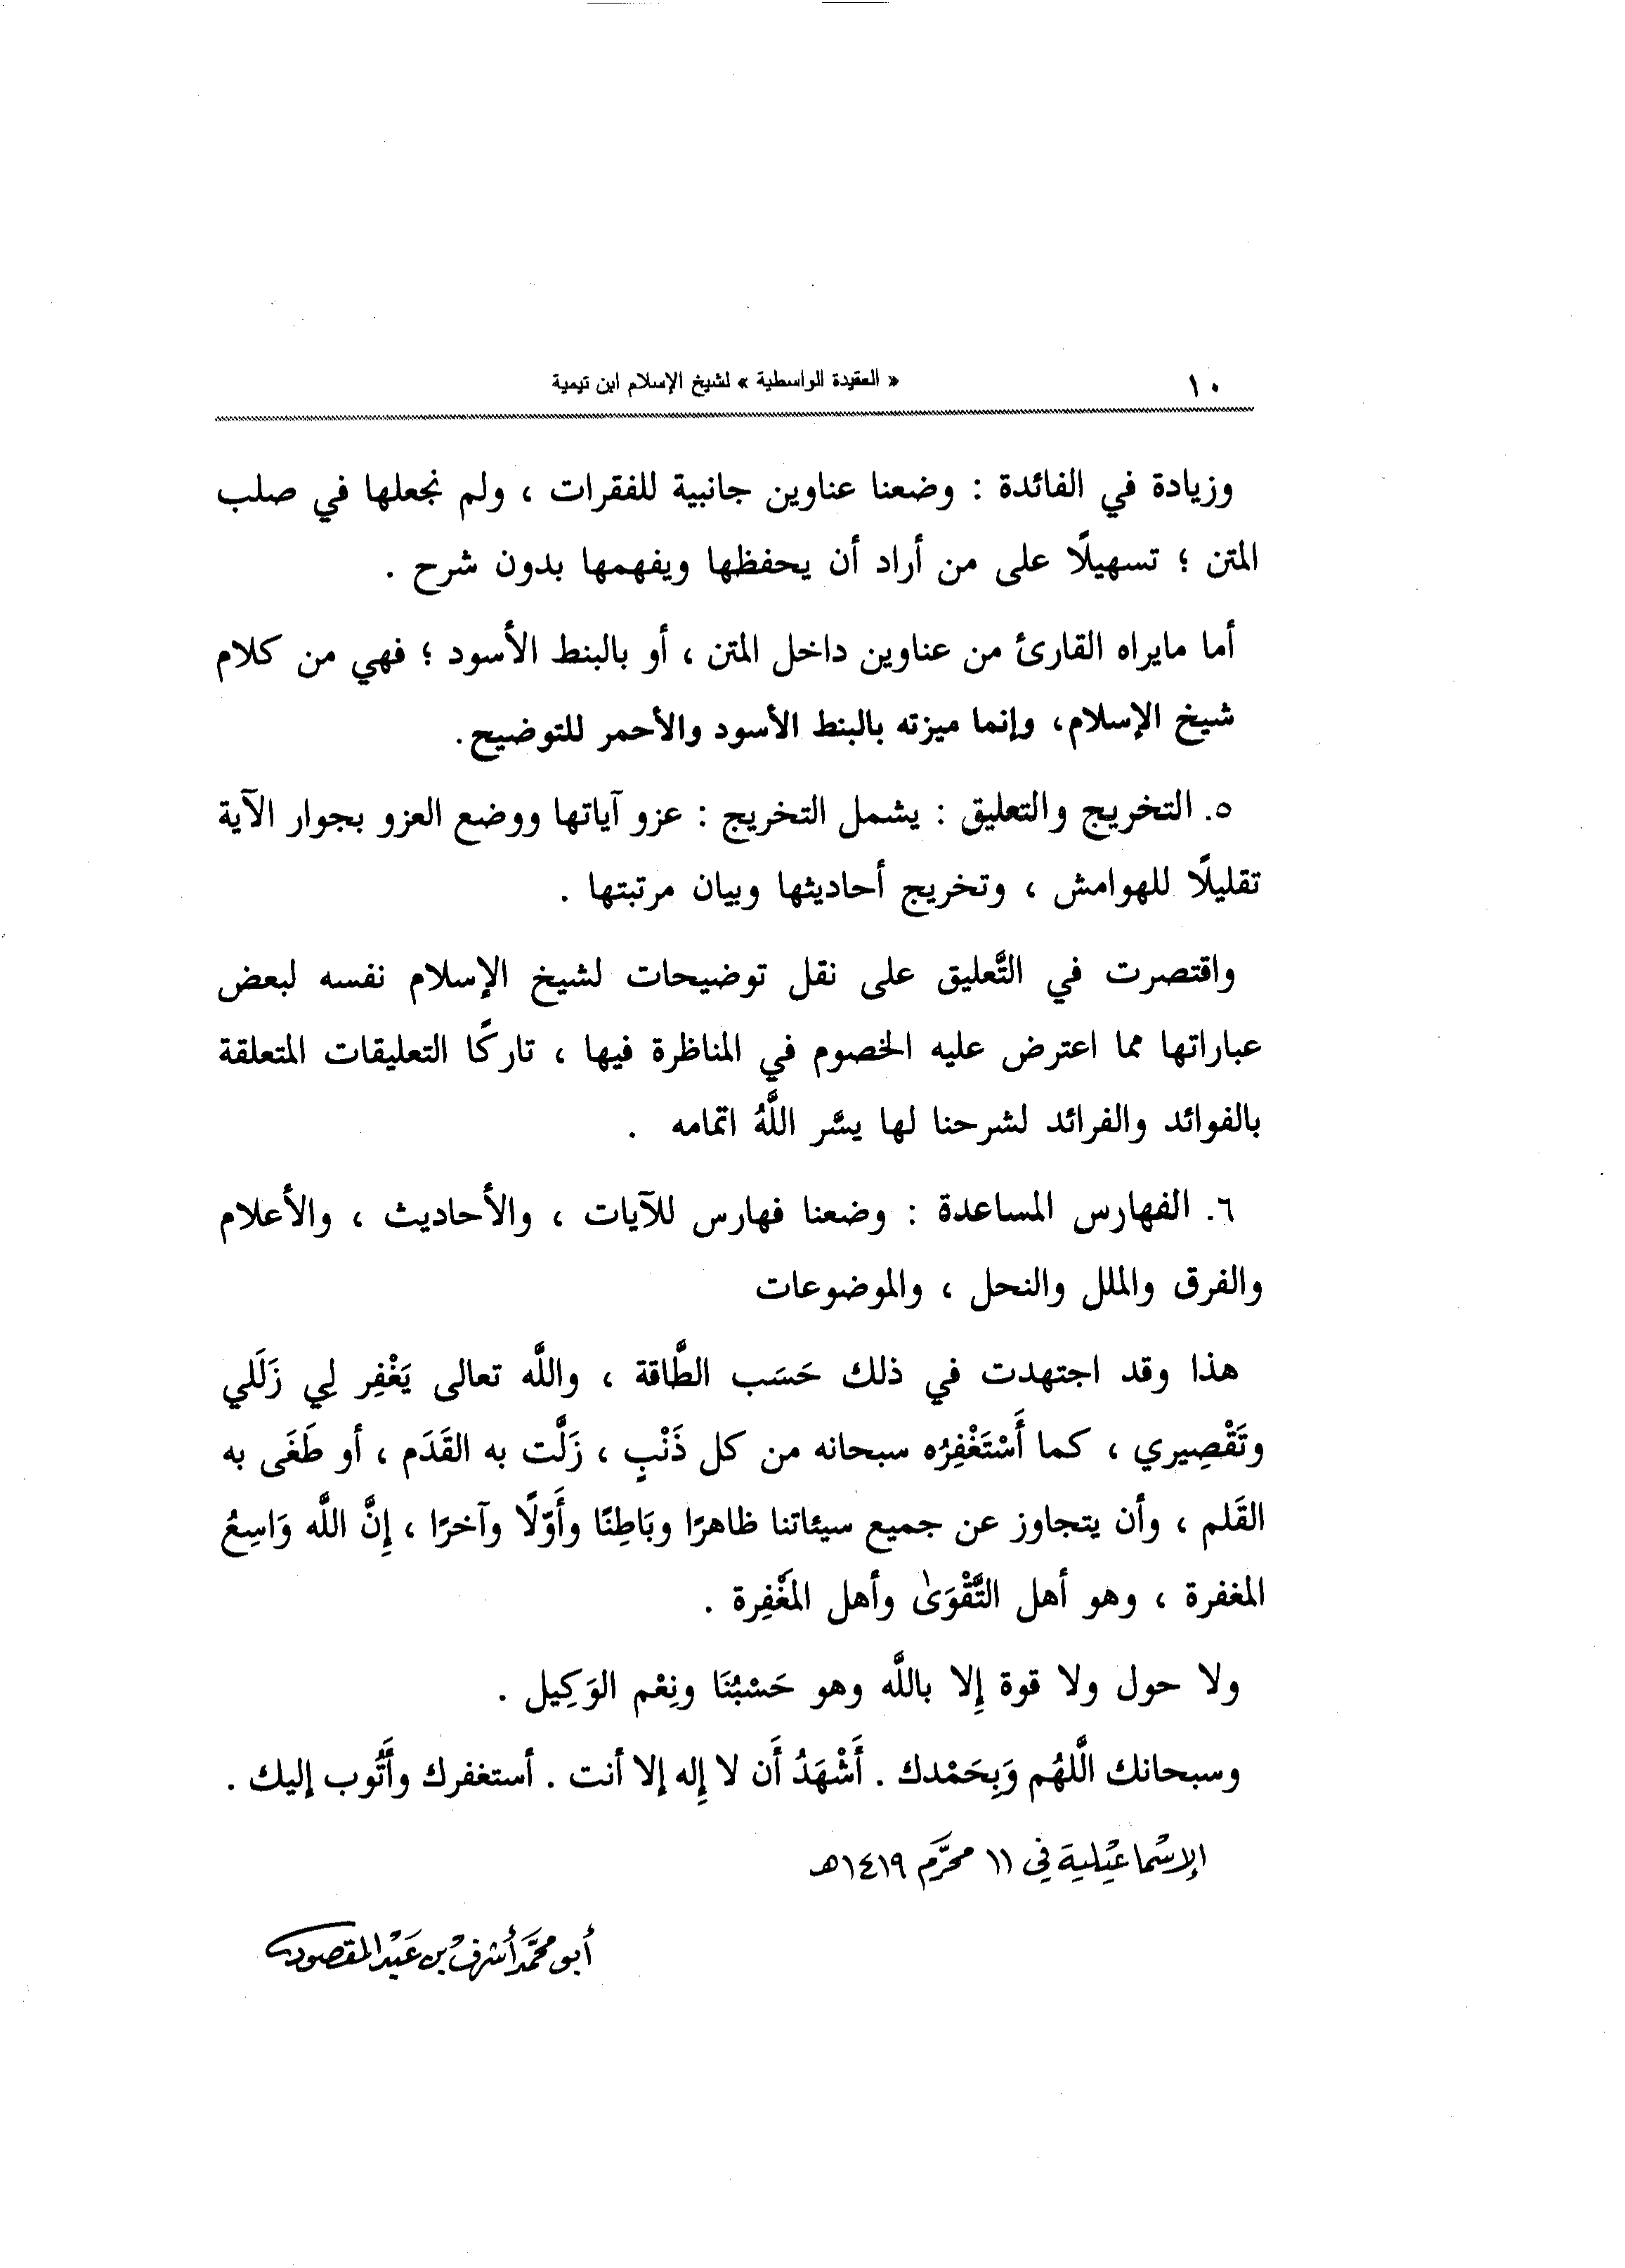 ١٠
« العقيدة الواسطية » لشيخ الإسلام ابن تيمية
وزيادة في الفائدة : وضعنا عناوين جانبية للفقرات ، ولم نجعلها في صلب
المتن ؛ تسهيلًا على من أراد أن يحفظها ويفهمها بدون شرح .
أما مايراه القارئ من عناوين داخل المتن ، أو بالبنط الأسود ؛ فهي من كلام
شيخ الإسلام، وإنما ميزته بالبنط الأسود والأحمر للتوضيح.
٥. التخريج والتعليق : يشمل التخريج : عزو آياتها ووضع العزو بجوار الآية
تقليلًا للهوامش ، وتخريج أحاديثها وبيان مرتبتها .
واقتصرت في التَّعليق على نقل توضيحات لشيخ الإسلام نفسه لبعض
عباراتها مما اعترض عليه الخصوم في المناظرة فيها ، تاركًا التعليقات المتعلقة
بالفوائد والفرائد لشرحنا لها يسَّر اللَّهُ اتمامه .
٦. الفهارس المساعدة : وضعنا فهارس للآيات ، والأحاديث ، والأعلام
والفرق والملل والنحل ، والموضوعات
هذا وقد اجتهدت في ذلك حَسَب الطَّاقة ، واللَّه تعالى يَغْفِر لِي زَلَلي
وتَقْصِيري ، كما أَسْتَغْفِرُه سبحانه من كل ذَنْبٍ ، زَلَّت به القَدَم ، أو طَغَى به
القَلم ، وأن يتجاوز عن جميع سيئاتنا ظاهرًا وبَاطِنًا وأَوّلًا وآخرًا ، إِنَّ اللَّه وَاسِعُ
المغفرة ، وهو أهل التَّقْوَىٰ وأهل المَغْفِرة .
ولا حول ولا قوة إِلا باللَّه وهو حَسْبُنَا ونِعْم الوَكِيل .
وسبحانك الَّلهُم وَبِحَمْدك . أَشْهَدُ أَن لا إِله إلا أنت . أستغفرك وأَتُوب إليك .
الإِسْماعيْلية في ١١ محرَّم ١٤١٩هـ
أبو محمَّد أشرف بْن عَبْد المقصود